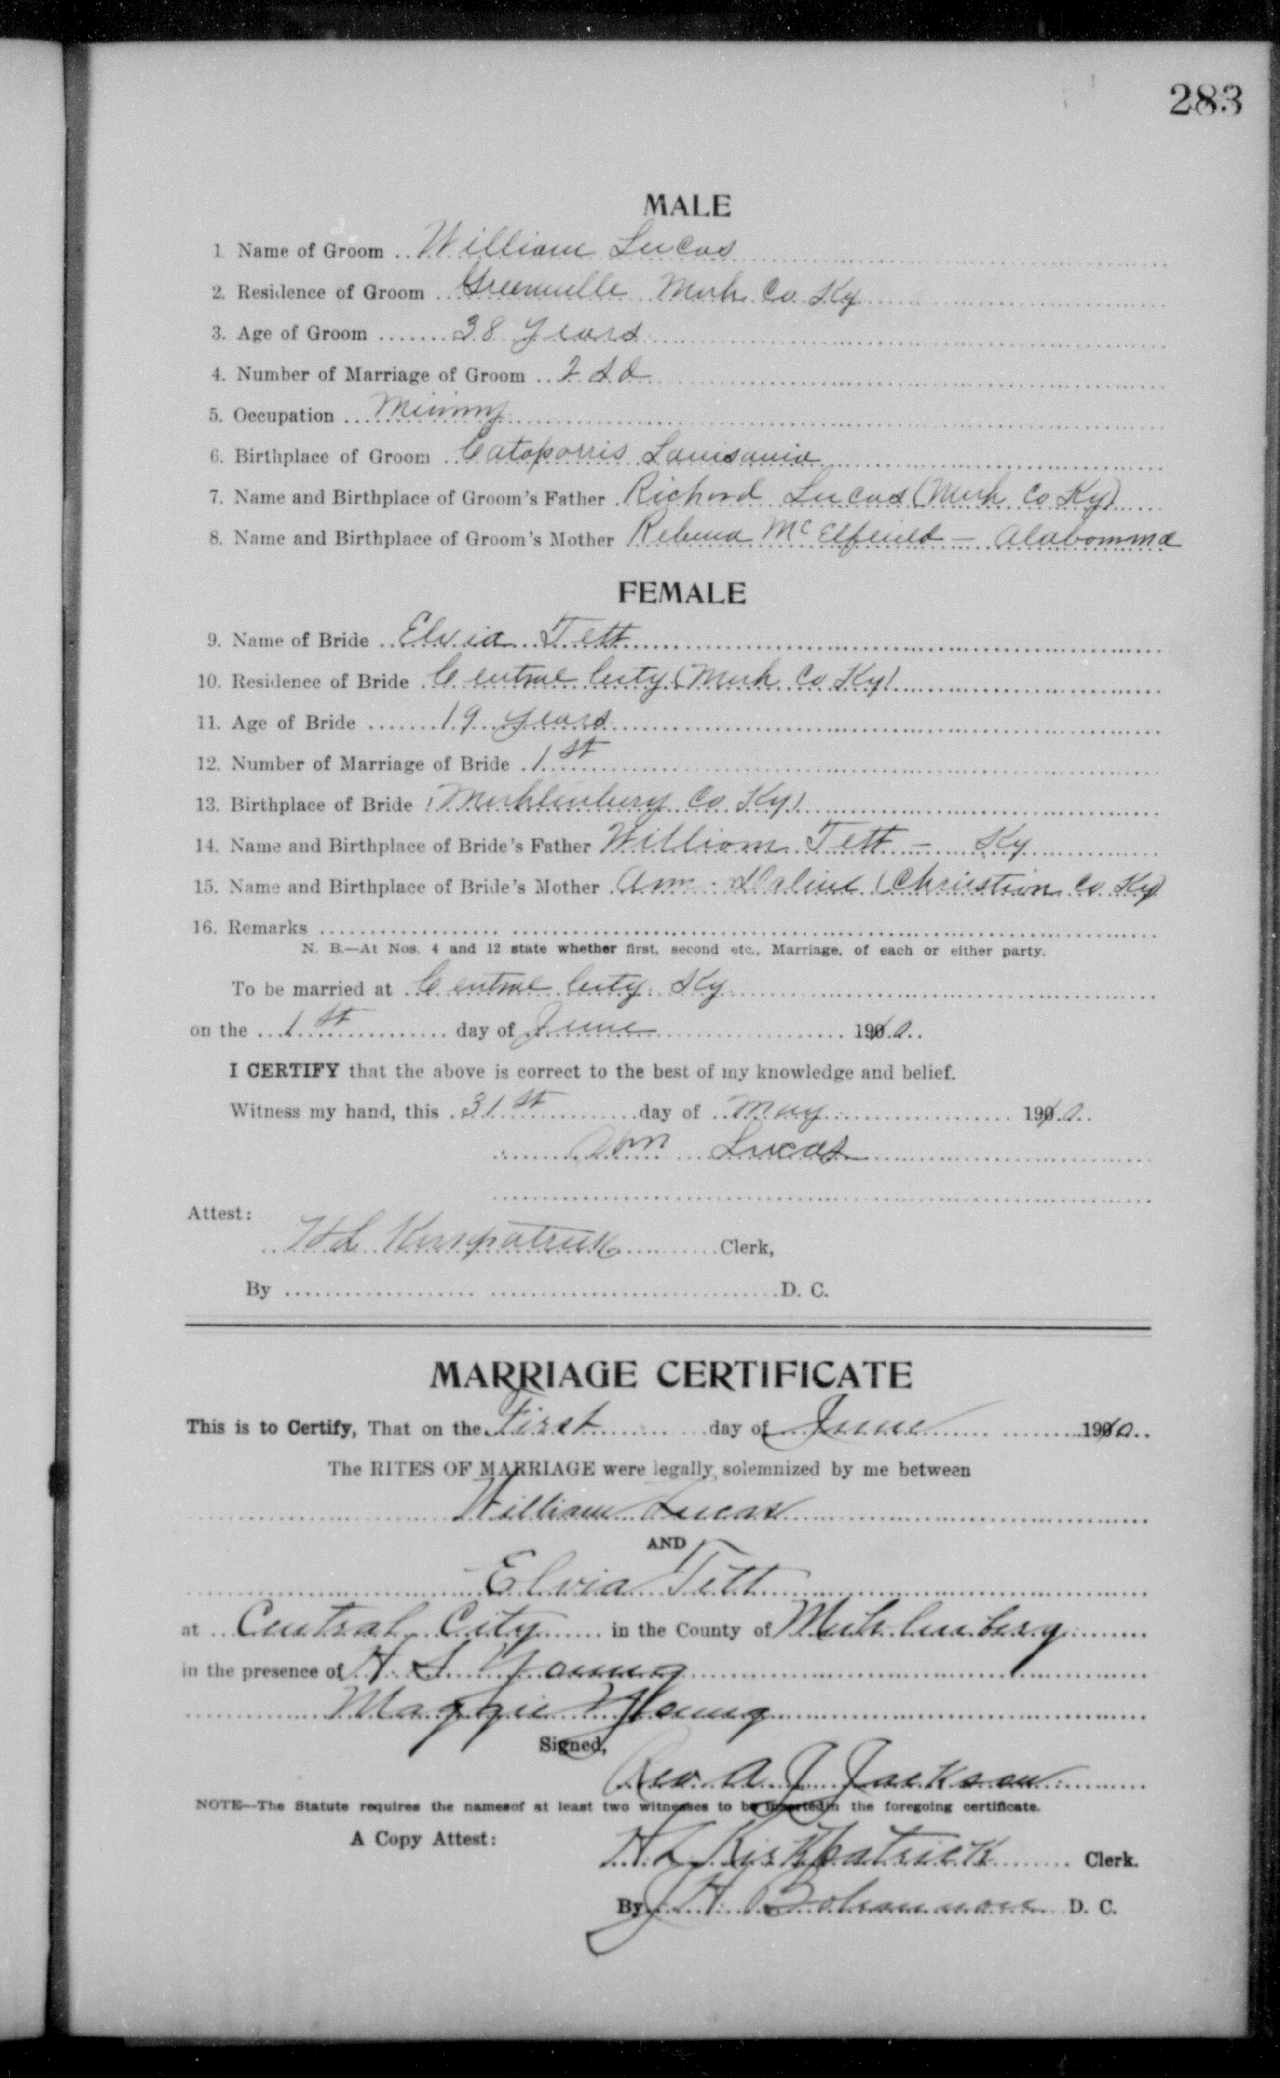 283
MALE
1. Name of Groom William Lucas
2. Residence of Groom Greenville Muh. Co Ky
3. Age of Groom 38 years
4. Number of Marriage of Groom 2 d
5. Occupation
6. Birthplace of Groom Louisania
7. Name and Birthplace of Groom's Father Richard Lucas (Muh Co Ky)
8. Name and Birthplace of Groom's Mother Mc Alabamma
FEMALE
9. Name of Bride Elvia Tett
10. Residence of Bride Central City (Muh Co Ky)
11. Age of Bride 19 years
12. Number of Marriage of Bride 1st
13. Birthplace of Bride (Muhlenburg Co Ky)
14. Name and Birthplace of Bride's Father William Tett - Ky
15. Name and Birthplace of Bride's Mother Ann (Christian Co Ky)
16. Remarks
N. B.—At Nos. 4 and 12 state whether first, second etc., Marriage, of each or either party.
To be married at Central City Ky
on the 1st day of June 1910
I CERTIFY that the above is correct to the best of my knowledge and belief.
Witness my hand, this 31st day of May 1910
Wm Lucas
Attest:
H L Kirkpatrick Clerk,
By D. C.
MARRIAGE CERTIFICATE
This is to Certify, That on the First day of June 1910
The RITES OF MARRIAGE were legally solemnized by me between
William Lucas
AND
Elvia Tett
at Central City in the County of Muhlenberg
in the presence of H. S. Young
Maggie Young
Signed,
Rev A J Jackson
NOTE—The Statute requires the namesof at least two witnesses to be insertedin the foregoing certificate.
A Copy Attest:
H L Kirkpatrick Clerk.
By J H Bohannon D. C.